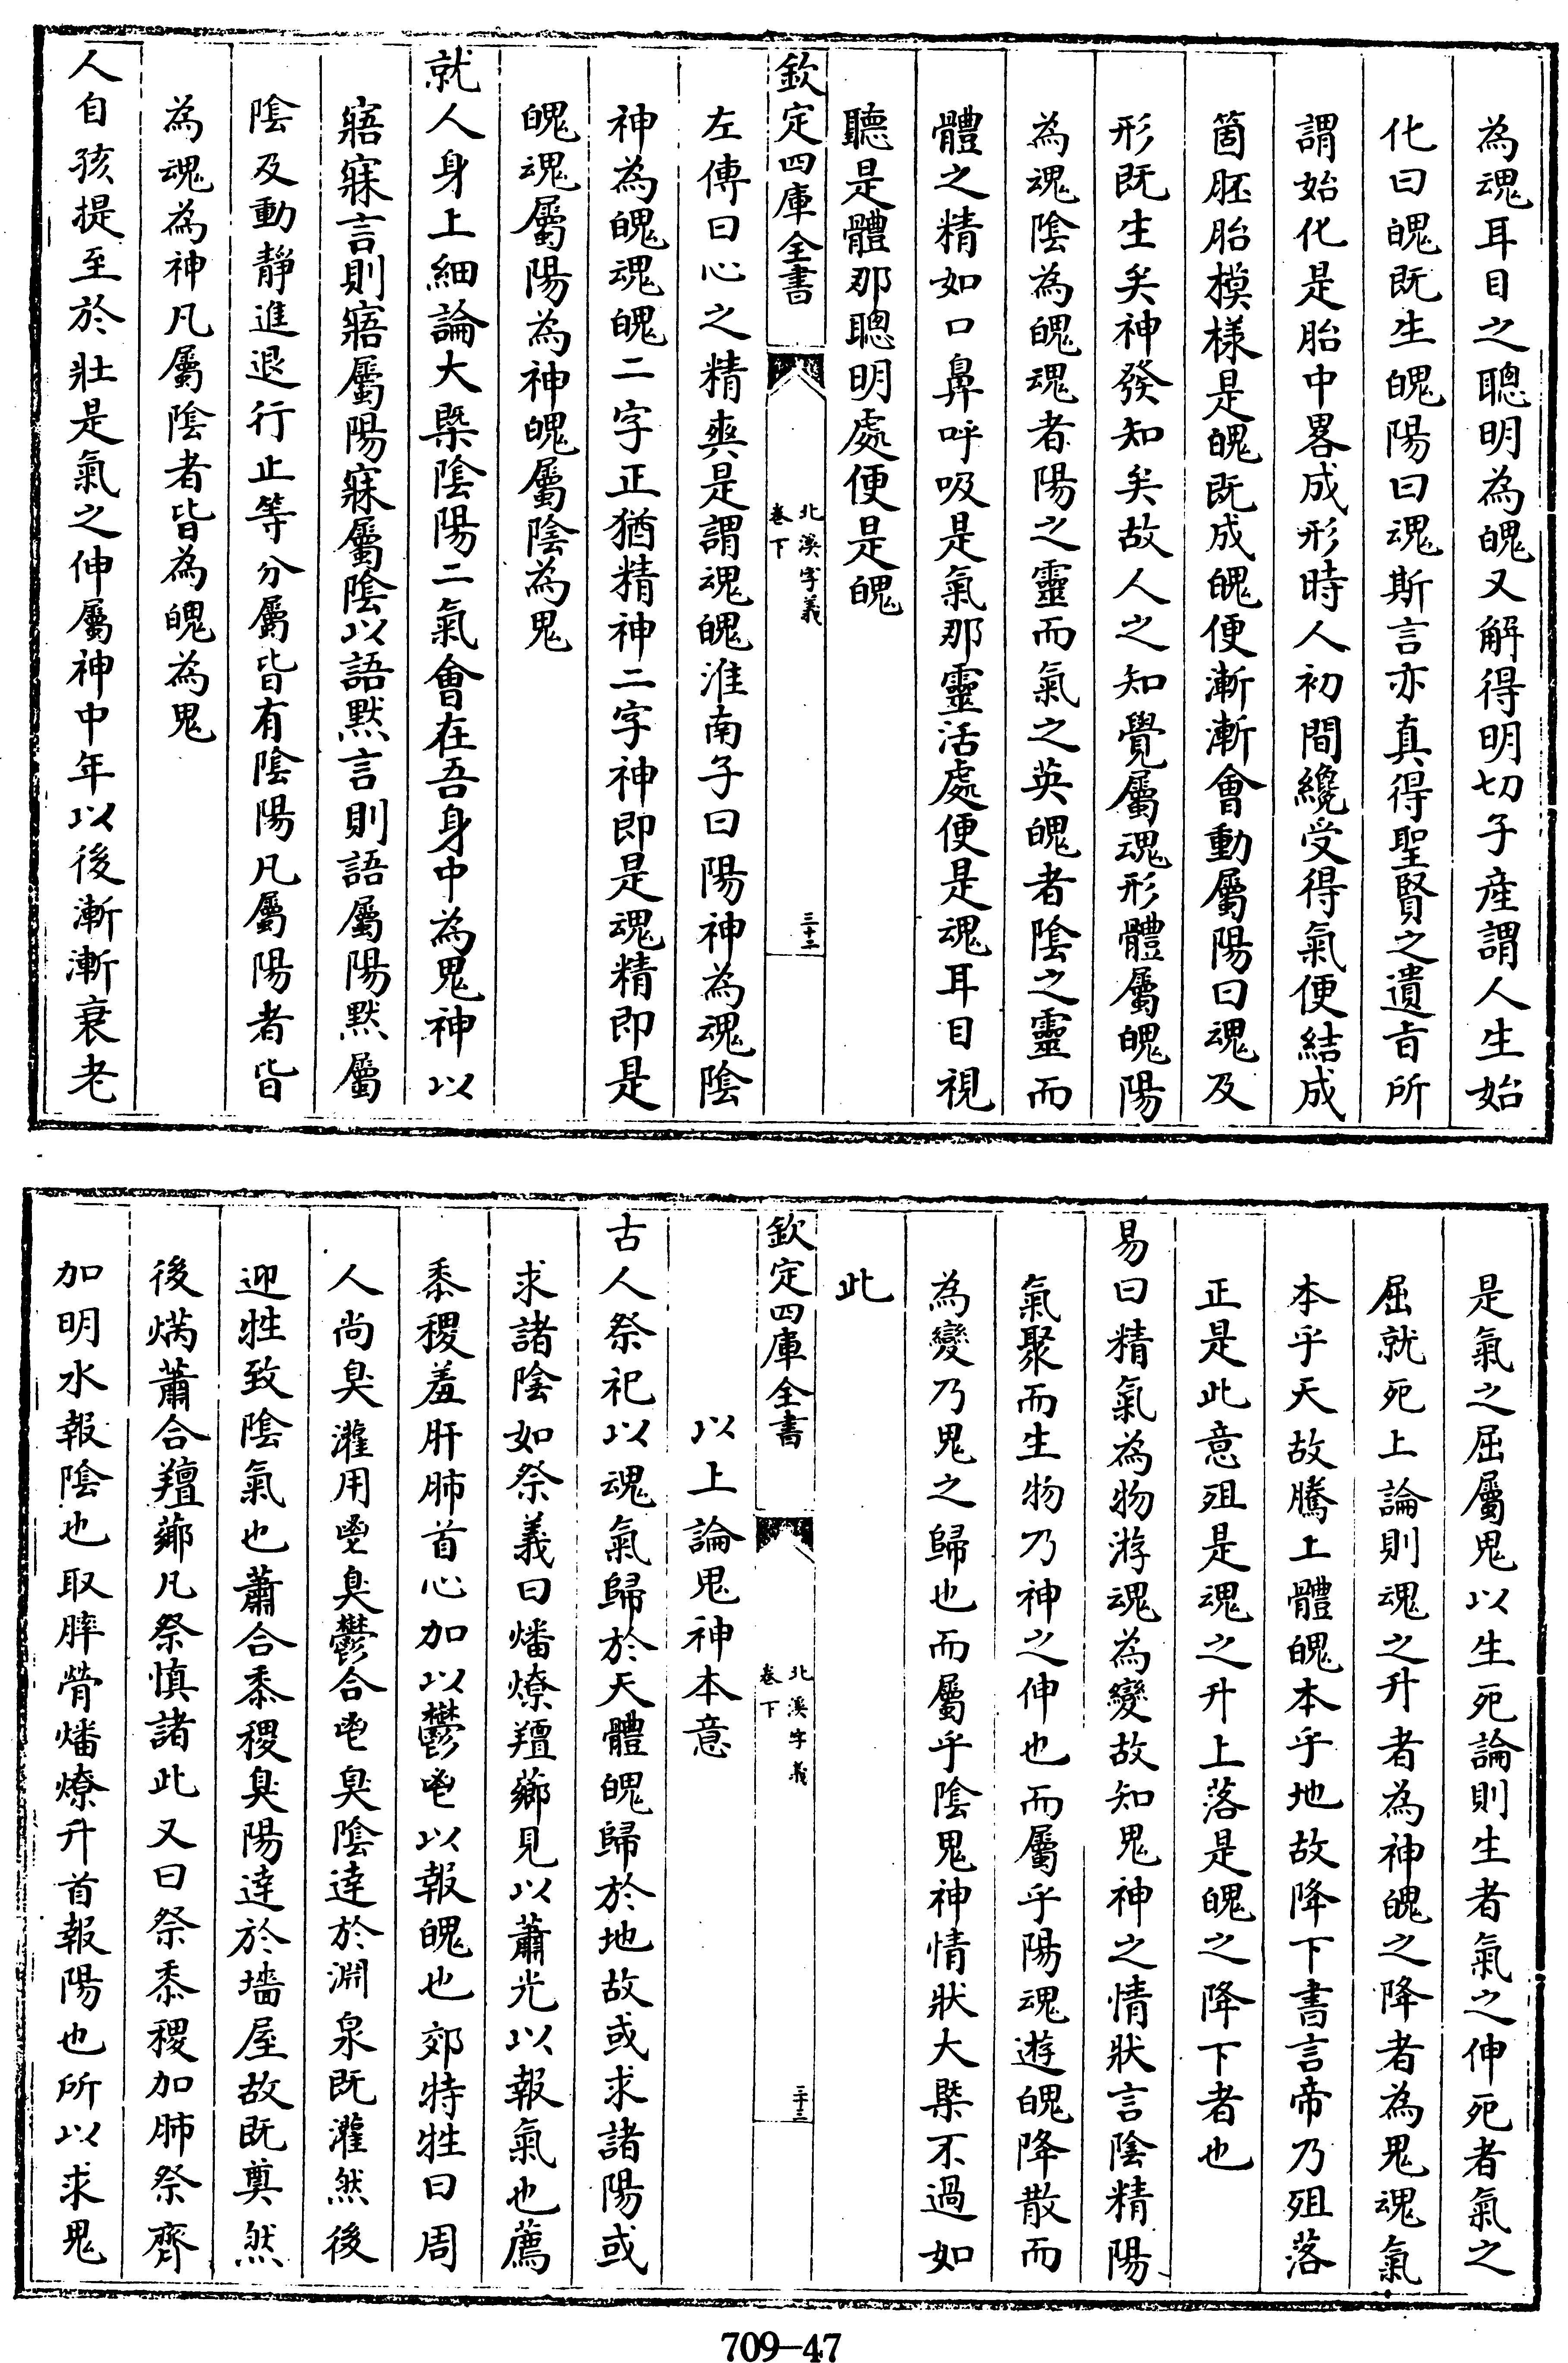 為魂耳目之聰明為魄又解得明切子産謂人生始
化曰魄既生魄陽曰魂斯言亦真得聖賢之遺旨所
謂始化是胎中畧成形時人初間纔受得氣便結成
箇胚胎模様是魄既成魄便漸漸會動屬陽曰魂及
形既生矣神發知矣故人之知覺屬魂形體屬魄陽
為魂陰為魄魂者陽之靈而氣之英魄者陰之靈而
體之精如口鼻呼吸是氣那靈活處便是魂耳目視
聽是體那聰明處便是魄
欽定四庫全書
北溪字義
卷下
三十二
左傳曰心之精爽是謂魂魄淮南子曰陽神為魂陰
神為魄魂魄二字正猶精神二字神即是魂精即是
魄魂屬陽為神魄屬陰為鬼
就人身上細論大槩陰陽二氣會在吾身中為鬼神以
寤寐言則寤屬陽寐屬陰以語黙言則語屬陽黙屬
陰及動静進退行止等分屬皆有陰陽凡屬陽者皆
為魂為神凡屬陰者皆為魄為鬼
人自孩提至於壯是氣之伸屬神中年以後漸漸衰老
是氣之屈屬鬼以生死論則生者氣之伸死者氣之
屈就死上論則魂之升者為神魄之降者為鬼魂氣
本乎天故騰上體魄本乎地故降下書言帝乃殂落
正是此意殂是魂之升上落是魄之降下者也
易曰精氣為物游魂為變故知鬼神之情狀言陰精陽
氣聚而生物乃神之伸也而屬乎陽魂遊魄降散而
為變乃鬼之歸也而屬乎陰鬼神情狀大槩不過如
此
欽定四庫全書
北溪字義
卷下
三十三
以上論鬼神本意
古人祭祀以魂氣歸於天體魄歸於地故或求諸陽或
求諸陰如祭義曰燔燎羶薌見以蕭光以報氣也薦
黍稷羞肝肺首心加以鬱鬯以報魄也郊特牲曰周
人尚臭灌用鬯臭鬱合鬯臭陰達於淵泉既灌然後
迎牲致陰氣也蕭合黍稷臭陽達於墻屋故既奠然
後焫蕭合羶薌凡祭慎諸此又曰祭黍稷加肺祭齊
加明水報陰也取膟膋燔燎升首報陽也所以求鬼
709-47